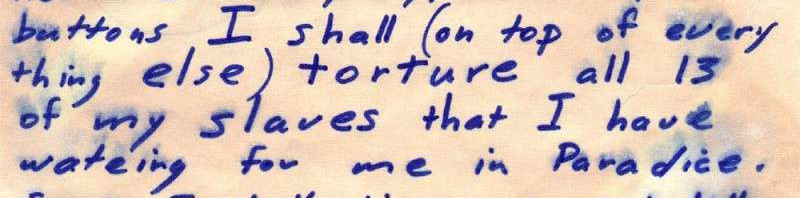 buttons I shall (on top of every
thing else) torture all 13
of my slaves that I have
wateing for me in Paradice.